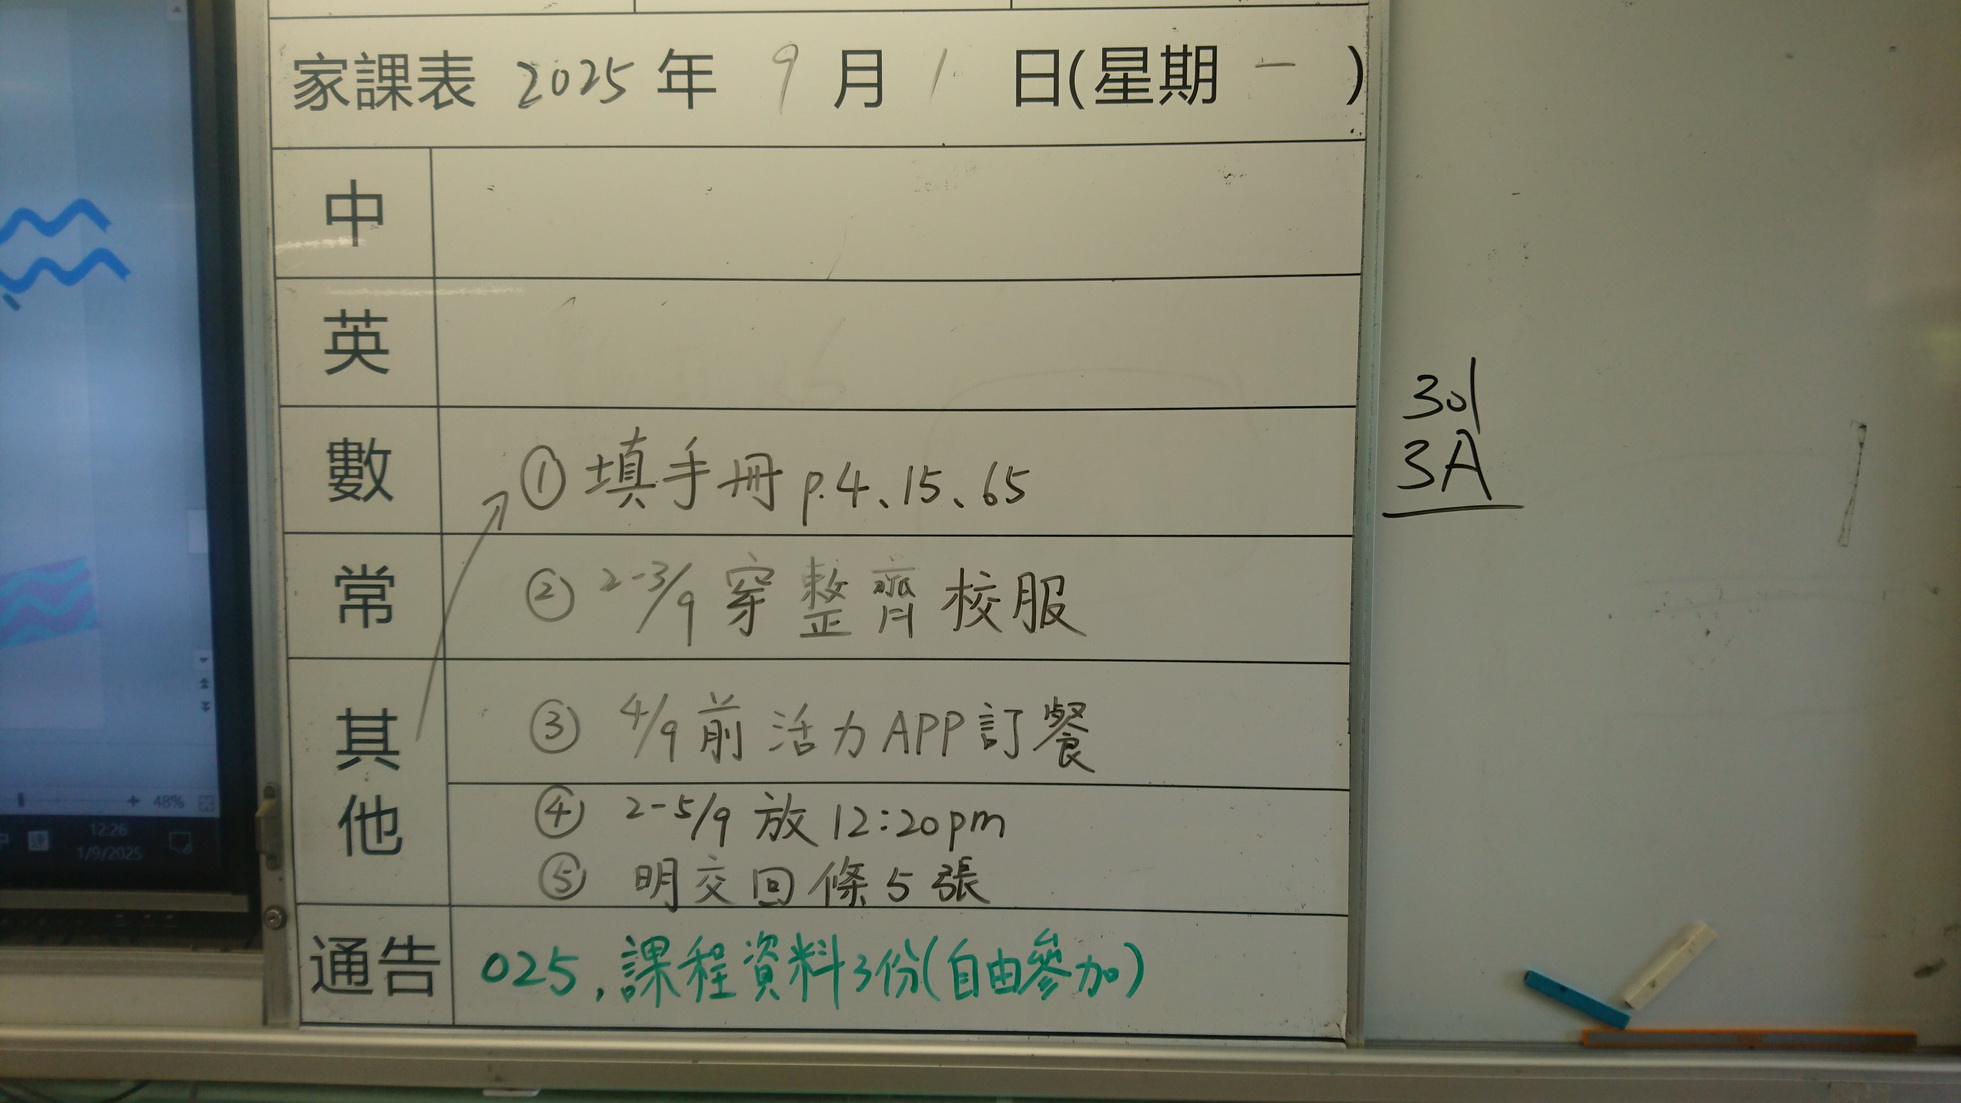 家課表 2025 年 9 月 1 日(星期 一 )
中
英
數 ① 填手冊 p.4、15、65
常 ② 2-3/9 穿整齊校服
其他 ③ 4/9前 活力APP訂餐
④ 2-5/9 放 12:20pm
⑤ 明交回條5張
通告 025, 課程資料3份(自由參加)
301
3A
48%
12:26
1/9/2025